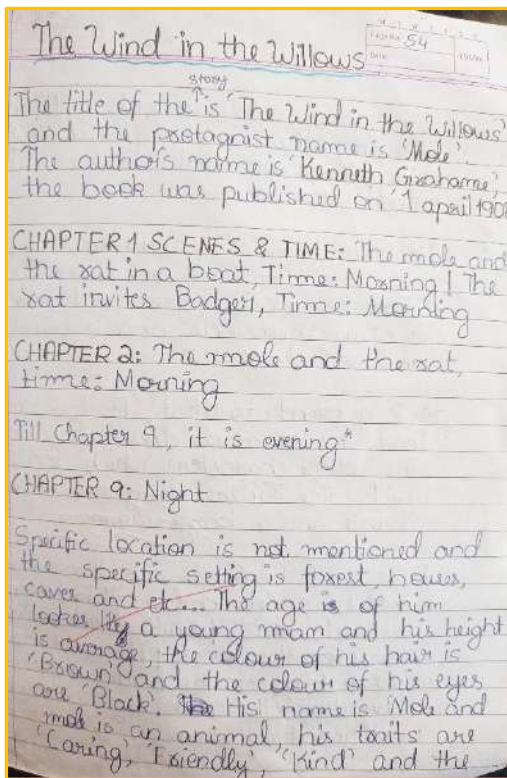 54
The Wind in the Willows
story
The title of the ↑ is 'The Wind in the Willows'
and the protagnist name is 'Mole'.
The author's name is 'Kenneth Grahame',
the book was published on '1 april 1908
CHAPTER 1 SCENES & TIME: The mole and
the rat in a boat, Time: Morning | The
rat invites Badger, Time: Morning
CHAPTER 2: The mole and the rat,
time: Morning
Till Chapter 9, it is evening"
CHAPTER 9: Night
Specific location is not mentioned and
the specific setting is forest, houses,
caves and etc... The age is of him
lookes like a young mam and his height
is average, the colour of his hair is
'Brown' and the colour of his eyes
are 'Black'. His name is Mole and
mole is an animal, his traits are
'Caring', 'Friendly', 'Kind' and the